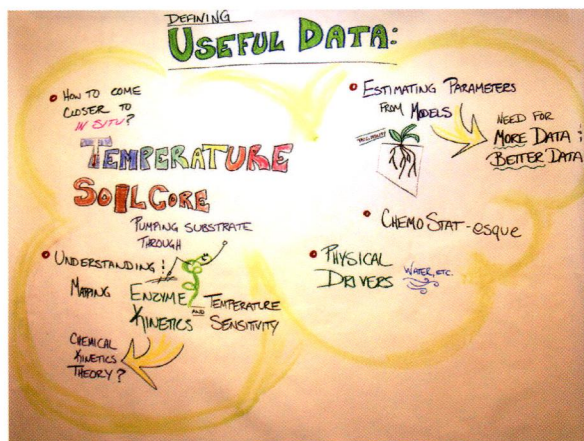 DEFINING
USEFUL DATA:
• HOW TO COME
CLOSER TO
IN SITU?
TEMPERATURE
SOIL CORE
PUMPING SUBSTRATE
THROUGH
• UNDERSTANDING
MAPPING ENZYME
KINETICS AND TEMPERATURE
SENSITIVITY
CHEMICAL
KINETICS
THEORY?
• ESTIMATING PARAMETERS
FROM MODELS
NEED FOR
MORE DATA:
BETTER DATA
• CHEMOSTAT-esque
• PHYSICAL
DRIVERS WATER, ETC.